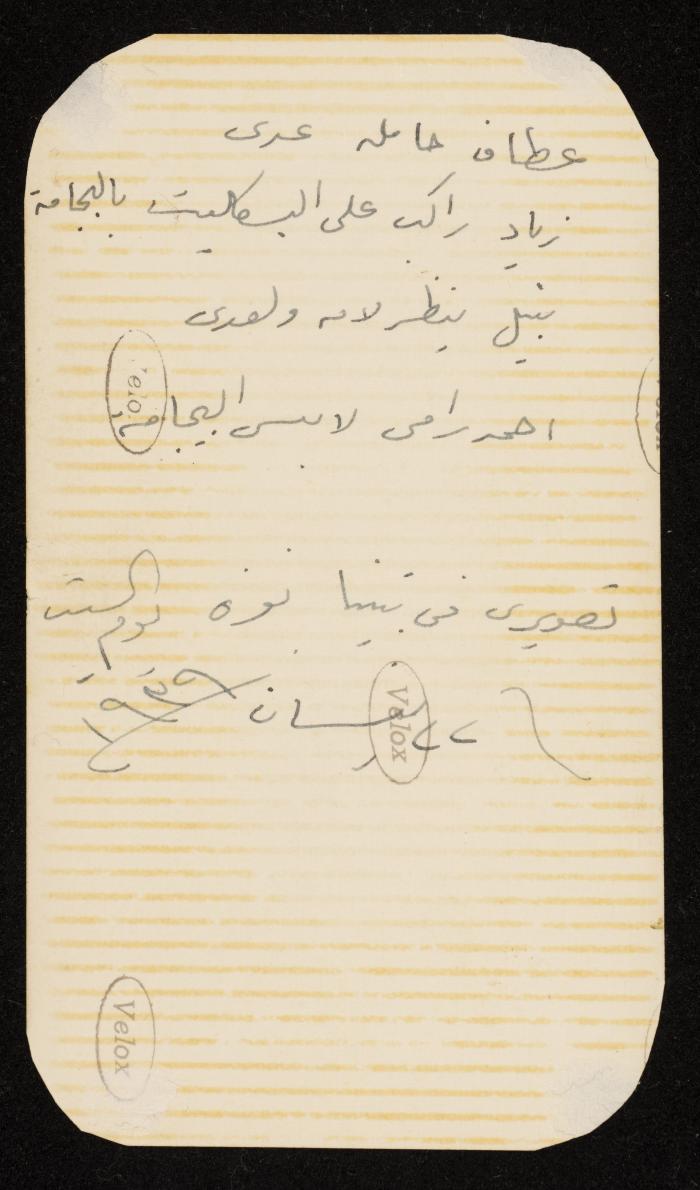 عطاف حامله عدى
زياد راكب على البسكليت بالبجامة
نبيل ينظر لامه ولعدى
احمد رامى لابس البيجامة
تصويرى فى بيتنا نوزه يوم السبت
نيسان
Velox
Velox